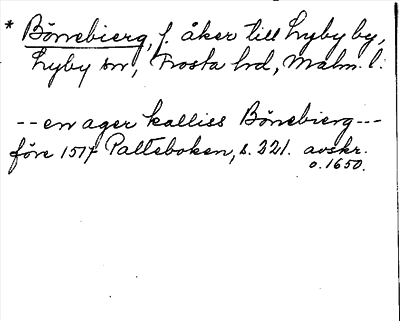 * Börrebierg, f. åker till Lyby by,
Lyby sn, Frosta hd, Malm. l.
-- en ager kalliss Börrebierg ---
före 1517 Palteboken, s. 221. avskr.
o. 1650.